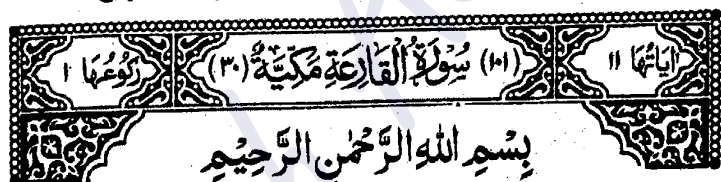 اٰيَاتُهَا ١١ (١٠١) سُوْرَةُ الْقَارِعَةِ مَكِّيَّةٌ (٣٠) رُكُوْعُهَا ١
بِسْمِ اللهِ الرَّحْمٰنِ الرَّحِيْمِ